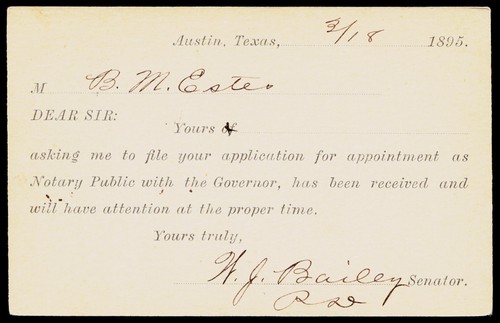 Austin, Texas, 3/18 1895.
M B. M. Estes
DEAR SIR:
Yours of
asking me to file your application for appointment as
Notary Public with the Governor, has been received and
will have attention at the proper time.
Yours truly,
W. J. Bailey Senator.